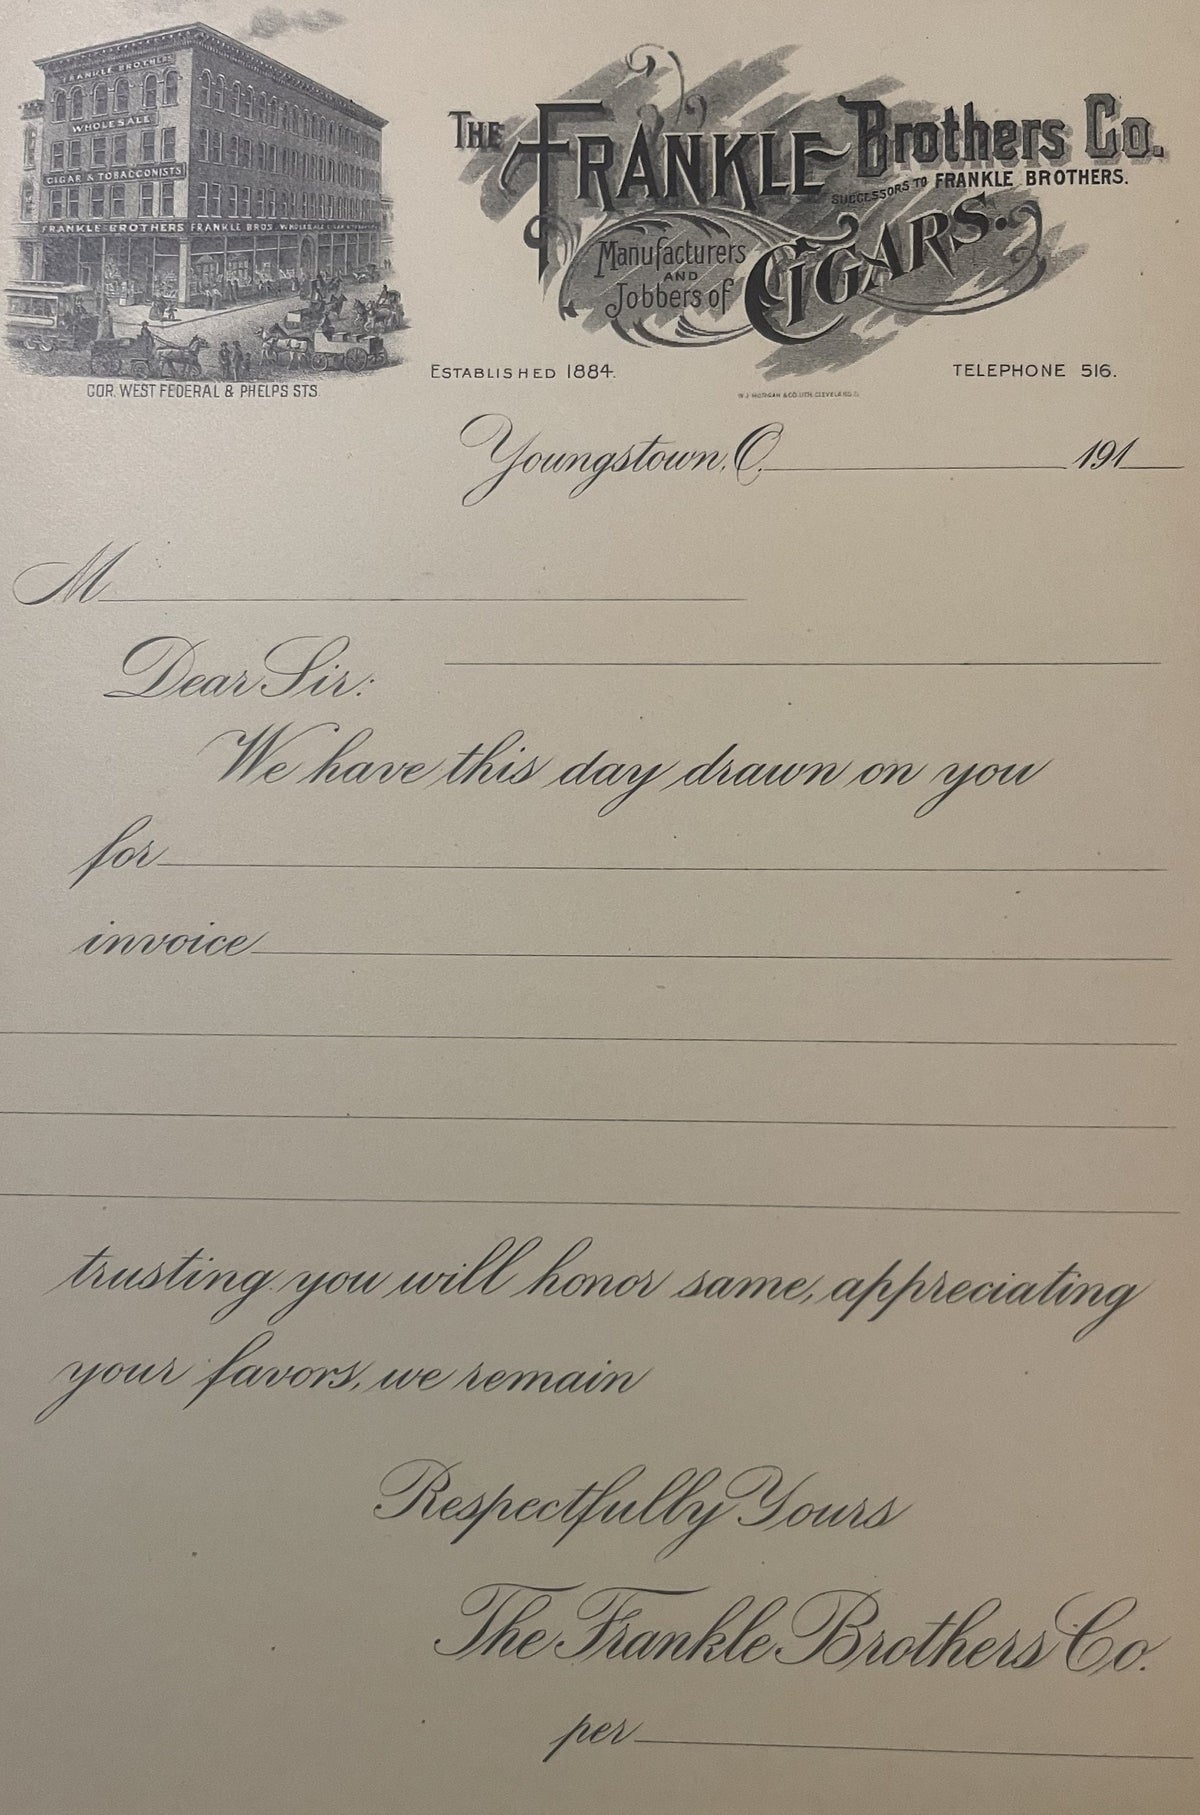 FRANKLE BROTHERS
WHOLESALE
CIGAR & TOBACCONISTS
FRANKLE BROTHERS FRANKLE BROS. WHOLESALE
COR. WEST FEDERAL & PHELPS STS.
THE FRANKLE Brothers Co.
SUCCESSORS TO FRANKLE BROTHERS.
Manufacturers
AND
Jobbers of
CIGARS.
ESTABLISHED 1884.
TELEPHONE 516.
W.J. MORGAN & CO. LITH. CLEVELAND, O.
Youngstown, O. 191
M
Dear Sir:
We have this day drawn on you
for
invoice
trusting you will honor same, appreciating
your favors, we remain
Respectfully Yours
The Frankle Brothers Co.
per